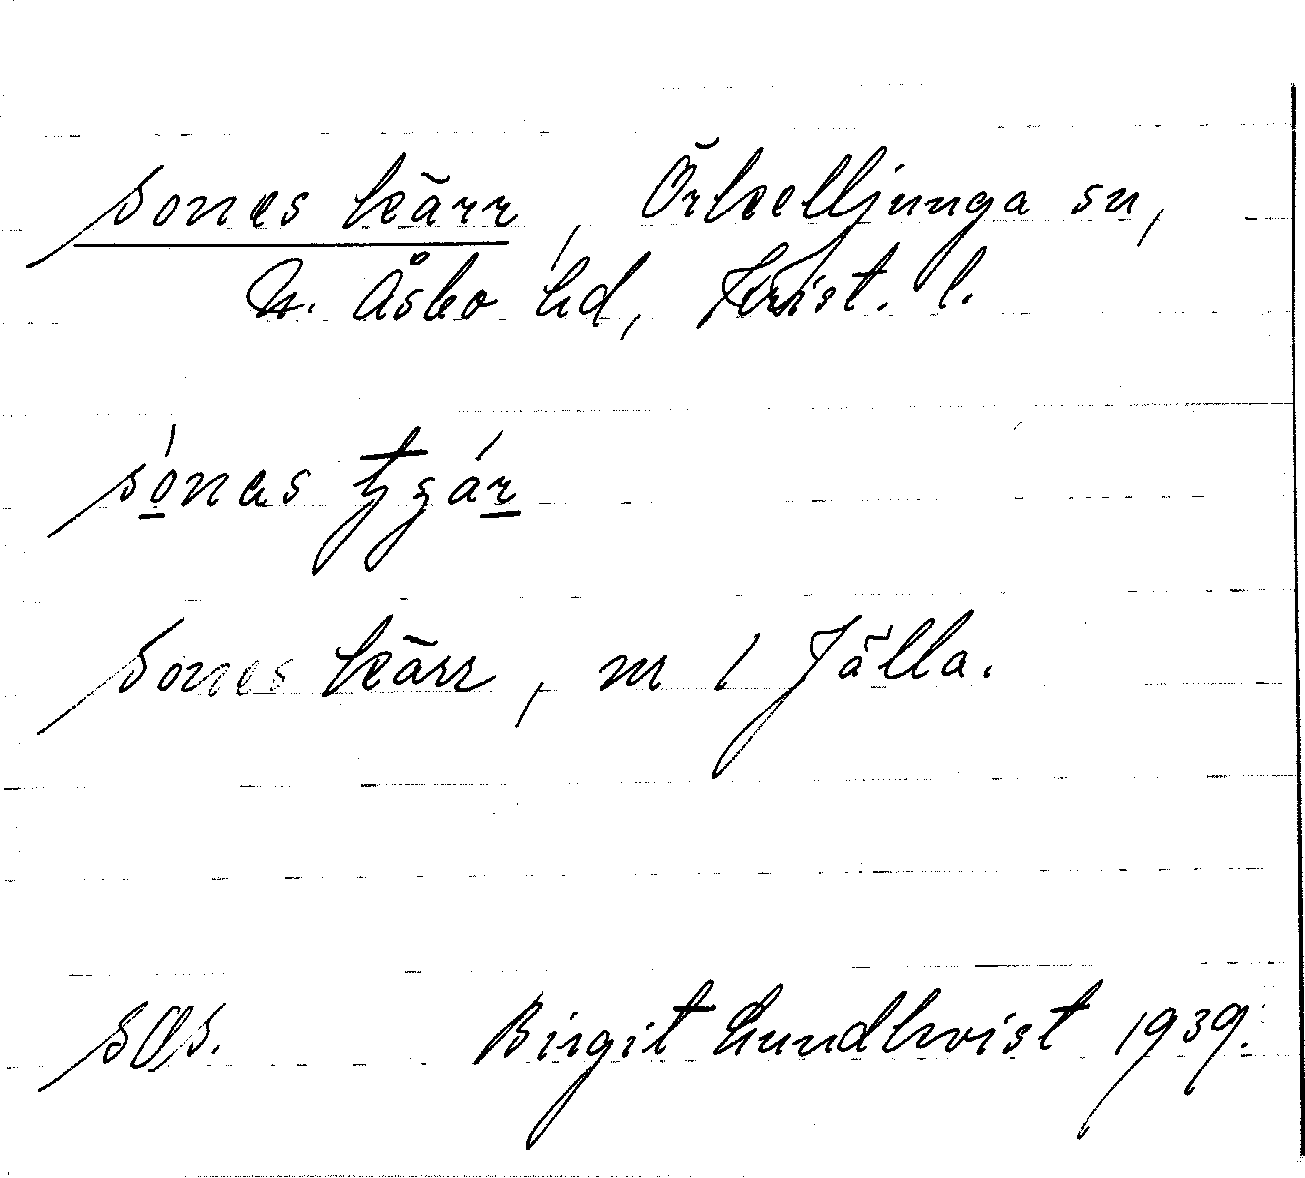 Sones kärr, Örkelljunga sn,
N. Åsbo hd, Krist. l.
sónas
Sones kärr, m 1 Jälla.
SOs. Birgit Lundkvist 1939.